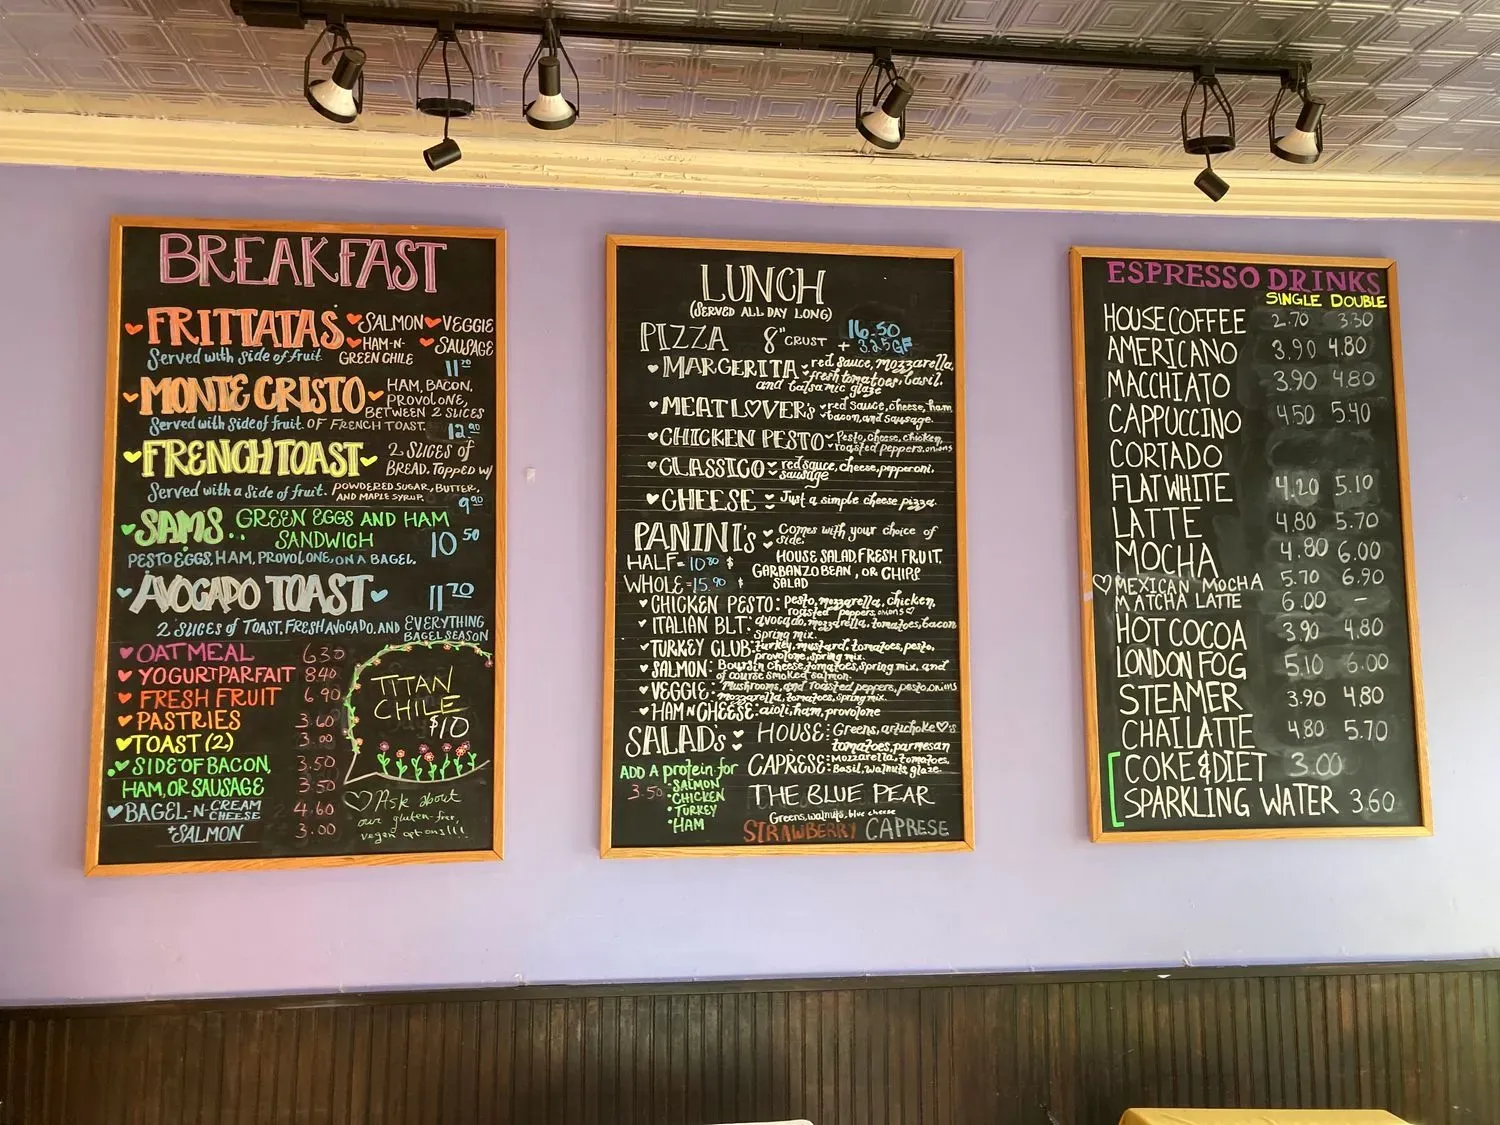 BREAKFAST
FRITTATAS
Served with side of fruit
SALMON VEGGIE
HAM-N-GREEN CHILE SAUSAGE
11 70
MONTE CRISTO
HAM, BACON,
PROVOLONE,
BETWEEN 2 SLICES
OF FRENCH TOAST.
Served with side of fruit.
12 90
FRENCH TOAST
2 SLICES of
BREAD. TOPPED W/
POWDERED SUGAR, BUTTER,
AND MAPLE SYRUP.
Served with a side of fruit.
9 90
SAM'S.. GREEN EGGS AND HAM
SANDWICH
10 50
PESTO EGGS, HAM, PROVOLONE, ON A BAGEL.
AVOCADO TOAST
11 70
2 SLICES of TOAST, FRESH AVOCADO, AND EVERYTHING
BAGEL SEASON
OATMEAL 6 30
YOGURT PARFAIT 8 40
FRESH FRUIT 6 90
PASTRIES 3.60
TOAST (2) 3.00
SIDE OF BACON, 3.50
HAM, OR SAUSAGE 3.50
BAGEL-N-CREAM CHEESE 4.60
+SALMON 3.00
TITAN
CHILE
$10
Ask about
our gluten-free,
vegan options!!!
LUNCH
(SERVED ALL DAY LONG)
PIZZA 8" CRUST 16.50
+ 3.25 GF
MARGERITA red sauce, mozzarella,
fresh tomatoes, basil,
and balsamic glaze
MEAT LOVER's red sauce, cheese, ham
bacon, and sausage.
CHICKEN PESTO Pesto, cheese, chicken,
roasted peppers, onions
CLASSICO red sauce, cheese, pepperoni,
sausage
CHEESE Just a simple cheese pizza.
PANINI's Comes with your choice of
side.
HALF = 10 80 $
WHOLE = 15.90 $
HOUSE SALAD, FRESH FRUIT,
GARBANZO BEAN, OR CHIPS
SALAD
CHICKEN PESTO: pesto, mozzarella, chicken,
roasted peppers, onions
ITALIAN BLT: avocado, mozzarella, tomatoes, bacon
spring mix.
TURKEY CLUB: turkey, mustard, tomatoes, pesto,
provolone, spring mix.
SALMON: Boursin cheese, tomatoes, spring mix, and
of course smoked salmon.
VEGGIE: Mushrooms, and roasted peppers, pesto, onions
mozzarella, tomatoes, spring mix.
HAM N CHEESE: aioli, ham, provolone
SALADs
HOUSE: Greens, artichoke s
tomatoes, parmesan
CAPRESE: Mozzarella, tomatoes,
Basil, walnuts, glaze.
THE BLUE PEAR
Greens, walnuts, blue cheese
STRAWBERRY CAPRESE
ADD A protein for
3.50
SALMON
CHICKEN
TURKEY
HAM
ESPRESSO DRINKS
SINGLE DOUBLE
HOUSE COFFEE 2.70 3.30
AMERICANO 3.90 4.80
MACCHIATO 3.90 4.80
CAPPUCCINO 4.50 5.40
CORTADO
FLAT WHITE 4.20 5.10
LATTE 4.80 5.70
MOCHA 4.80 6.00
MEXICAN MOCHA 5.70 6.90
MATCHA LATTE 6.00 –
HOT COCOA 3.90 4.80
LONDON FOG 5.10 6.00
STEAMER 3.90 4.80
CHAI LATTE 4.80 5.70
COKE & DIET 3.00
SPARKLING WATER 3.60